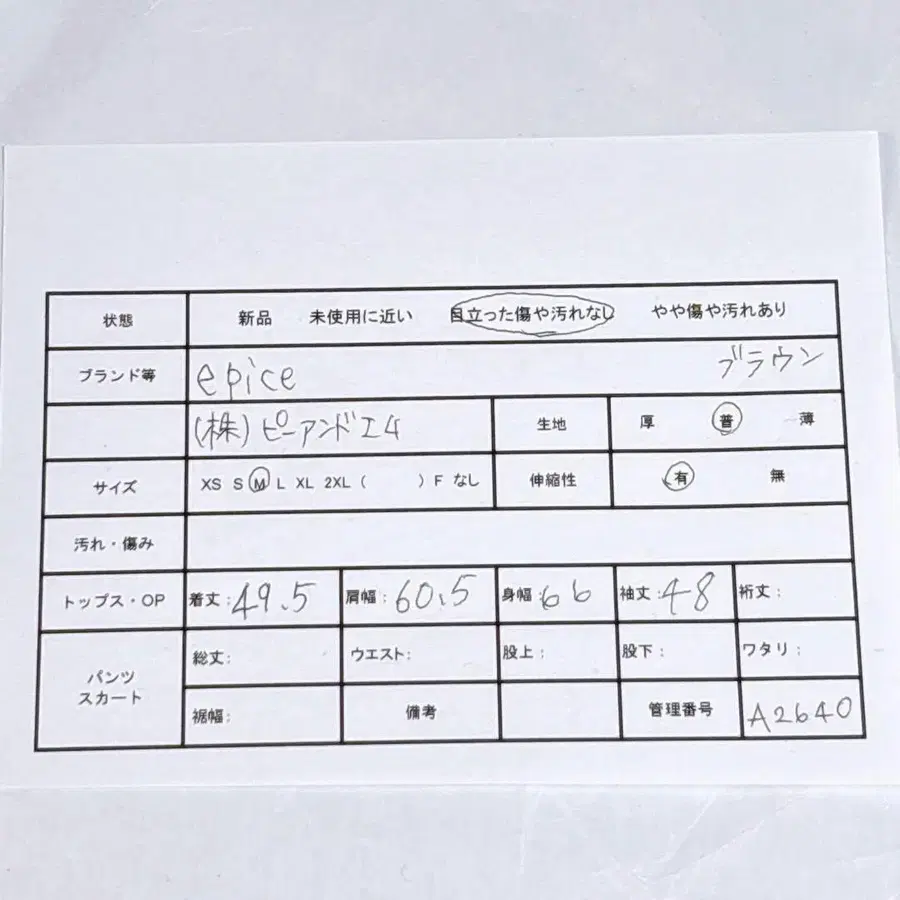 状態 新品 未使用に近い 目立った傷や汚れなし やや傷や汚れあり
ブランド等 epice ブラウン
(株)ピーアンドエム 生地 厚 普 薄
サイズ XS S M L XL 2XL ( ) F なし 伸縮性 有 無
汚れ・傷み
トップス・OP 着丈:49.5 肩幅:60.5 身幅:66 袖丈:48 裄丈:
パンツ スカート 総丈: ウエスト: 股上: 股下: ワタリ:
裾幅: 備考 管理番号 A2640